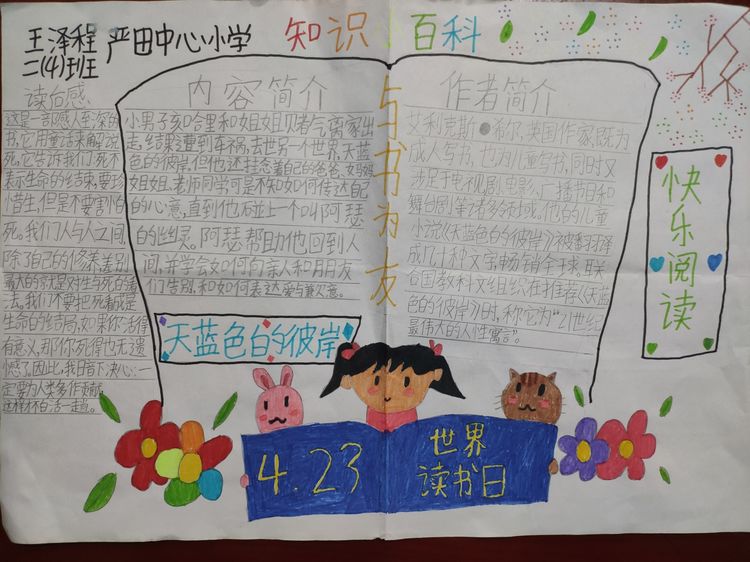 王泽程 严田中心小学
二(4)班
知识百科
与书为友
读后感:
这是一部感人至深的
书,它用童话来解说
死,它告诉我们死不
表示生命的结束,要珍
惜生,但是不要害怕
死。我们人与人之间,
除了自己的修养差别
最大的就是对生与死的看
法,我们不要把死看成是
生命的结局,如果你活得
有意义,那你死得也无遗
憾了,因此,我暗下决心:一
定要为人类多作贡献
这样才不白活一趟。
内容简介
小男孩哈里和姐姐贝者气离家出
走,结果遭到车祸,去世界一个世界,天蓝
色的彼岸,但他还挂念着自己的爸爸,妈妈
姐姐,老师同学可是不知如何传达自己
的心意,直到他碰上一个叫阿瑟
的幽灵。阿瑟帮助他回到人
间,并学会如何向亲人和朋友
们告别,和如何表达爱与兼人意。
天蓝色的彼岸
作者简介
艾利克斯●希尔,英国作家,既为
成人写书,也为儿童写书,同时又
涉足于电视剧,电影,广播节目和
舞台剧等诸多领域。他的儿童
小说《天蓝色的彼岸》被翻译
成几十种文字,畅销全球,联
合国教科文组织在推荐《天蓝
色的彼岸》时,称它为"21世纪
最伟大的人性寓言"。
快乐阅读
4.23
世界
读书日